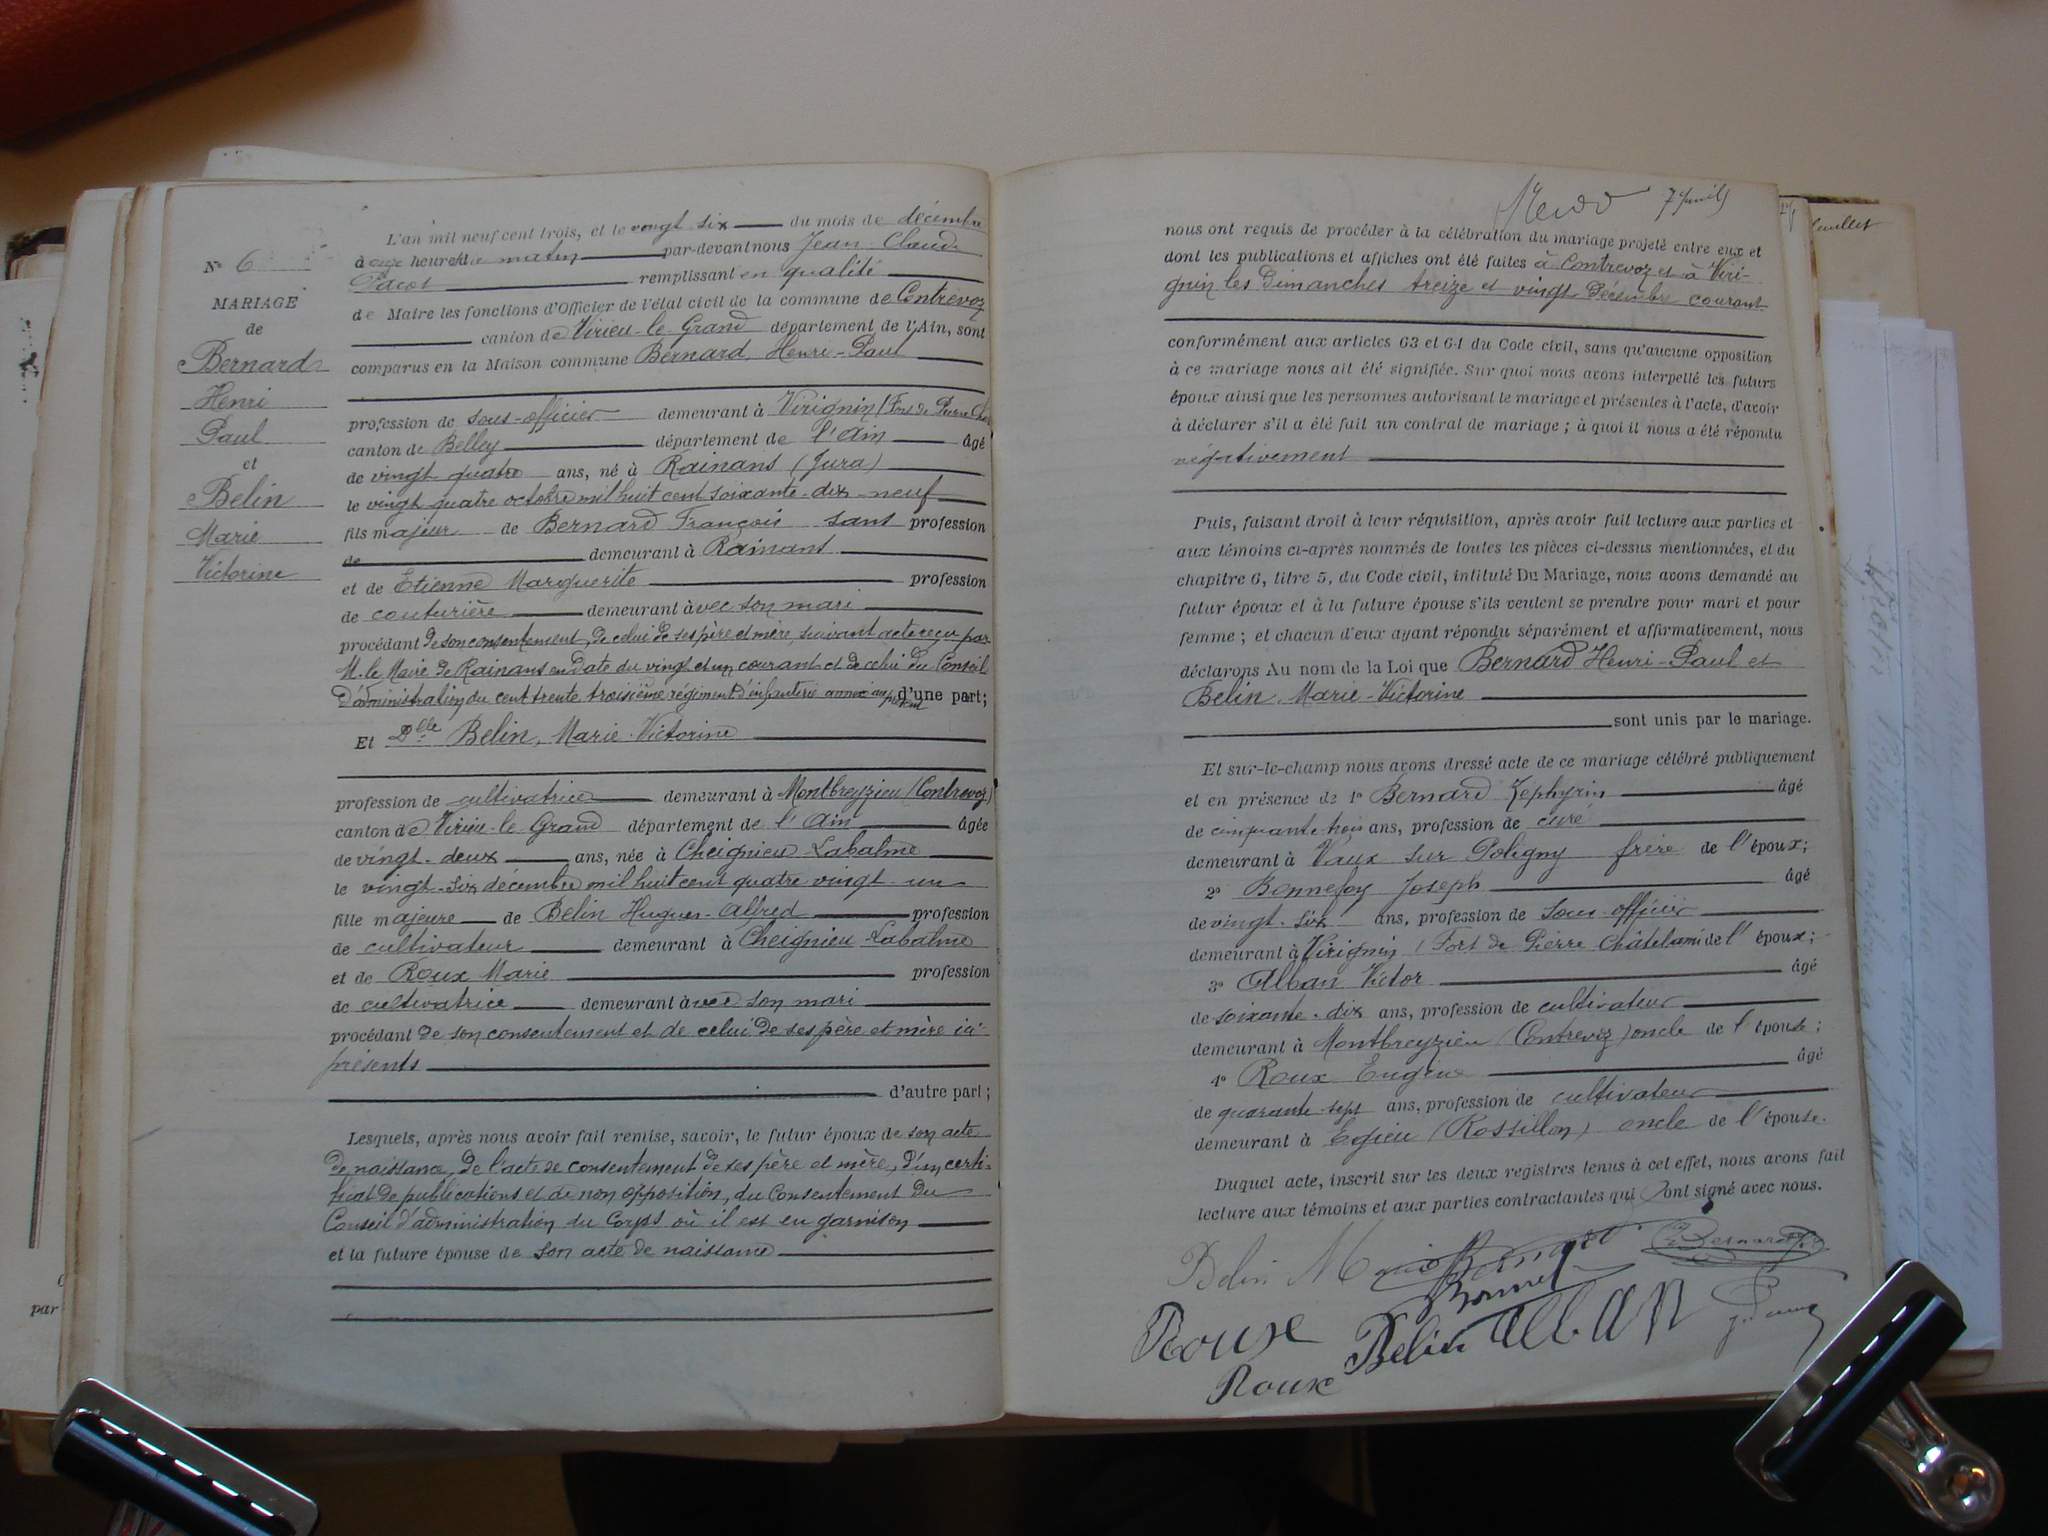 L'an mil neuf cent trois, et le vingt six du mois de décembre
à onze heures du matin par-devant nous Jean Claude
Pacot remplissant en qualité
de Maire les fonctions d'Officier de l'état civil de la commune de Contrevoz
canton de Virieu-le-Grand département de l'Ain, sont
comparus en la Maison commune Bernard, Henri-Paul
profession de sous-officier demeurant à Virignin (Fort de Pierre Chat
canton de Belley département de l'Ain âgé
de vingt quatre ans, né à Rainans (Jura)
le vingt quatre octobre mil huit cent soixante-dix-neuf
fils majeur de Bernard François sans profession
de demeurant à Rainans
et de Etienne Marguerite profession
de couturière demeurant avec son mari
procédant de son consentement, de celui de ses père et mère, suivant acte reçu par
M. le Maire de Rainans en date du vingt et un courant et de celui du Conseil
d'administration du cent trente troisième régiment d'infanterie annexé au présent d'une part;
Et Dlle Belin, Marie-Victorine
profession de cultivatrice demeurant à Montbreyzieu (Contrevoz)
canton de Virieu-le-Grand département de l'Ain âgée
de vingt-deux ans, née à Cheignieu Labalme
le vingt-six décembre mil huit cent quatre vingt-un
fille majeure de Belin Hugues-Alfred profession
de cultivateur demeurant à Cheignieu Labalme
et de Roux Marie profession
de cultivatrice demeurant avec son mari
procédant de son consentement et de celui de ses père et mère ici
présents
d'autre part;
Lesquels, après nous avoir fait remise, savoir, le futur époux de son acte
de naissance, de l'acte de consentement de ses père et mère, d'un certi-
ficat de publications et de non opposition, du Consentement du
Conseil d'administration du Corps où il est en garnison
et la future épouse de son acte de naissance
N° 6
MARIAGE
de
Bernard
Henri
Paul
et
Belin
Marie
Victorine
nous ont requis de procéder à la célébration du mariage projeté entre eux et
dont les publications et affiches ont été faites à Contrevoz et à Viri-
gnin les Dimanches treize et vingt Décembre courant
conformément aux articles 63 et 64 du Code civil, sans qu'aucune opposition
à ce mariage nous ait été signifiée. Sur quoi nous avons interpellé les futurs
époux ainsi que les personnes autorisant le mariage et présentes à l'acte, d'avoir
à déclarer s'il a été fait un contrat de mariage; à quoi il nous a été répondu
négativement
Puis, faisant droit à leur réquisition, après avoir fait lecture aux parties et
aux témoins ci-après nommés de toutes les pièces ci-dessus mentionnées, et du
chapitre 6, titre 5, du Code civil, intitulé Du Mariage, nous avons demandé au
futur époux et à la future épouse s'ils veulent se prendre pour mari et pour
femme; et chacun d'eux ayant répondu séparément et affirmativement, nous
déclarons Au nom de la Loi que Bernard Henri-Paul et
Belin, Marie-Victorine
sont unis par le mariage.
Et sur-le-champ nous avons dressé acte de ce mariage célébré publiquement
et en présence de 1° Bernard Zephyrin âgé
de cinquante trois ans, profession de curé
demeurant à Vaux sur Poligny frère de l'époux;
2° Bonnefoy Joseph âgé
de vingt-six ans, profession de sous-officier
demeurant à Virignin (Fort de Pierre Châtel ami de l'époux;
3° Alban Victor âgé
de soixante-dix ans, profession de cultivateur
demeurant à Montbreyzieu (Contrevoz) oncle de l'épouse;
4° Roux Eugène âgé
de quarante-sept ans, profession de cultivateur
demeurant à Egieu (Rossillon) oncle de l'épouse.
Duquel acte, inscrit sur les deux registres tenus à cet effet, nous avons fait
lecture aux témoins et aux parties contractantes qui ont signé avec nous.
Belin Marie Bernard Bernard
Roux Belin Alban
Roux
feuillet
par